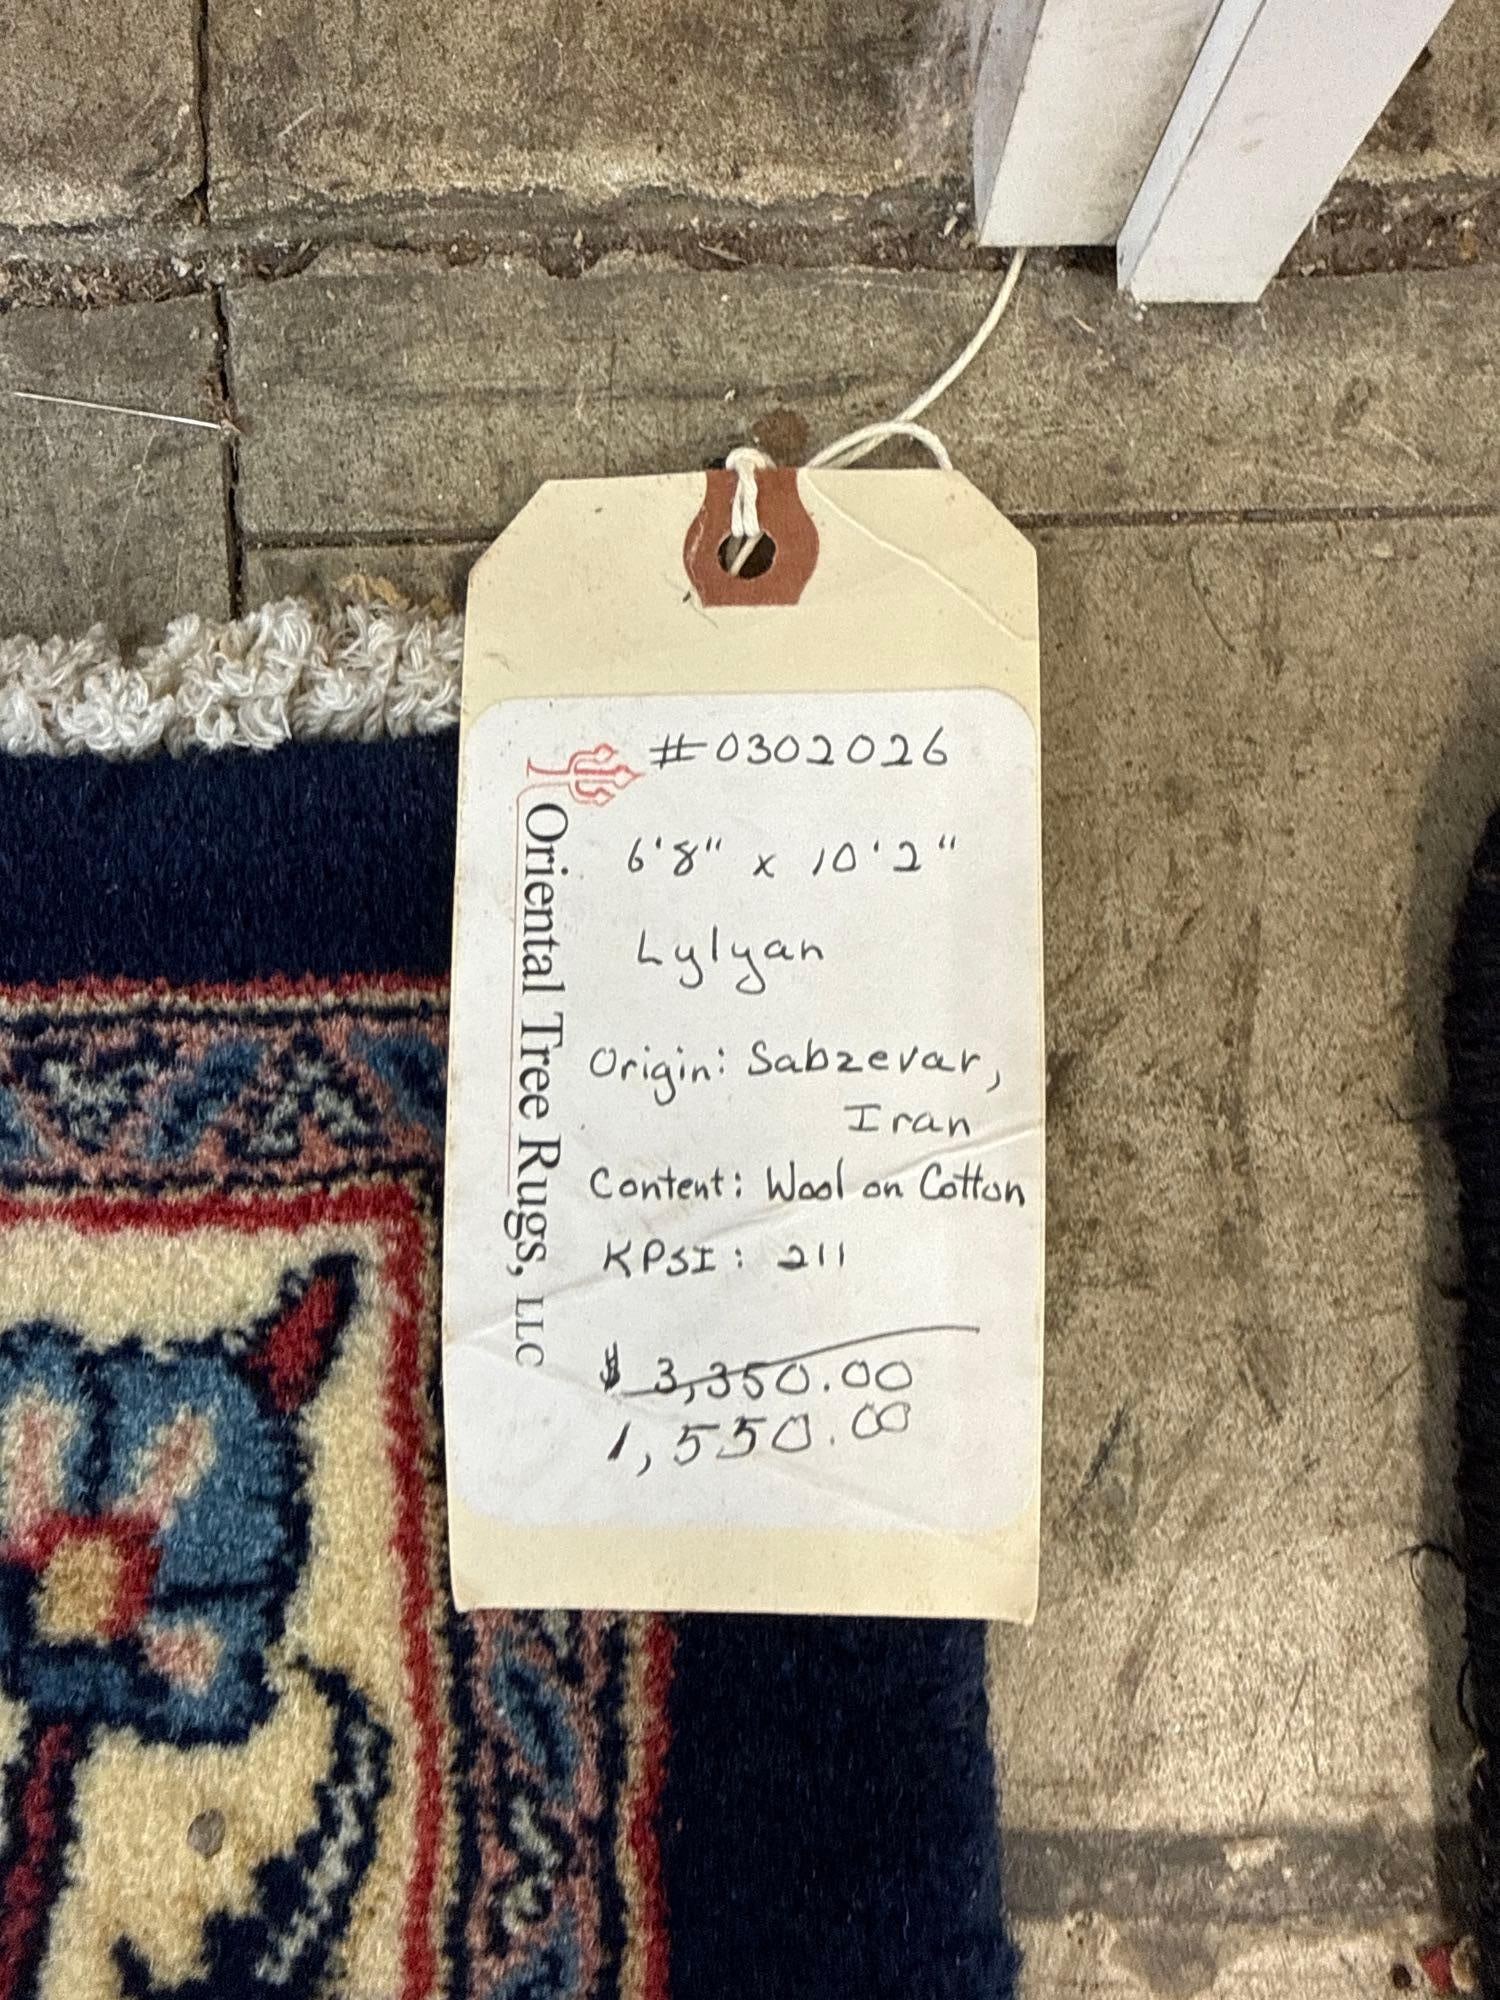 #0302026
6'8" x 10'2"
Lylyan
Origin: Sabzevar,
Iran
Content: Wool on Cotton
KPSI: 211
$ 3,350.00
1,550.00
Oriental Tree Rugs, LLC